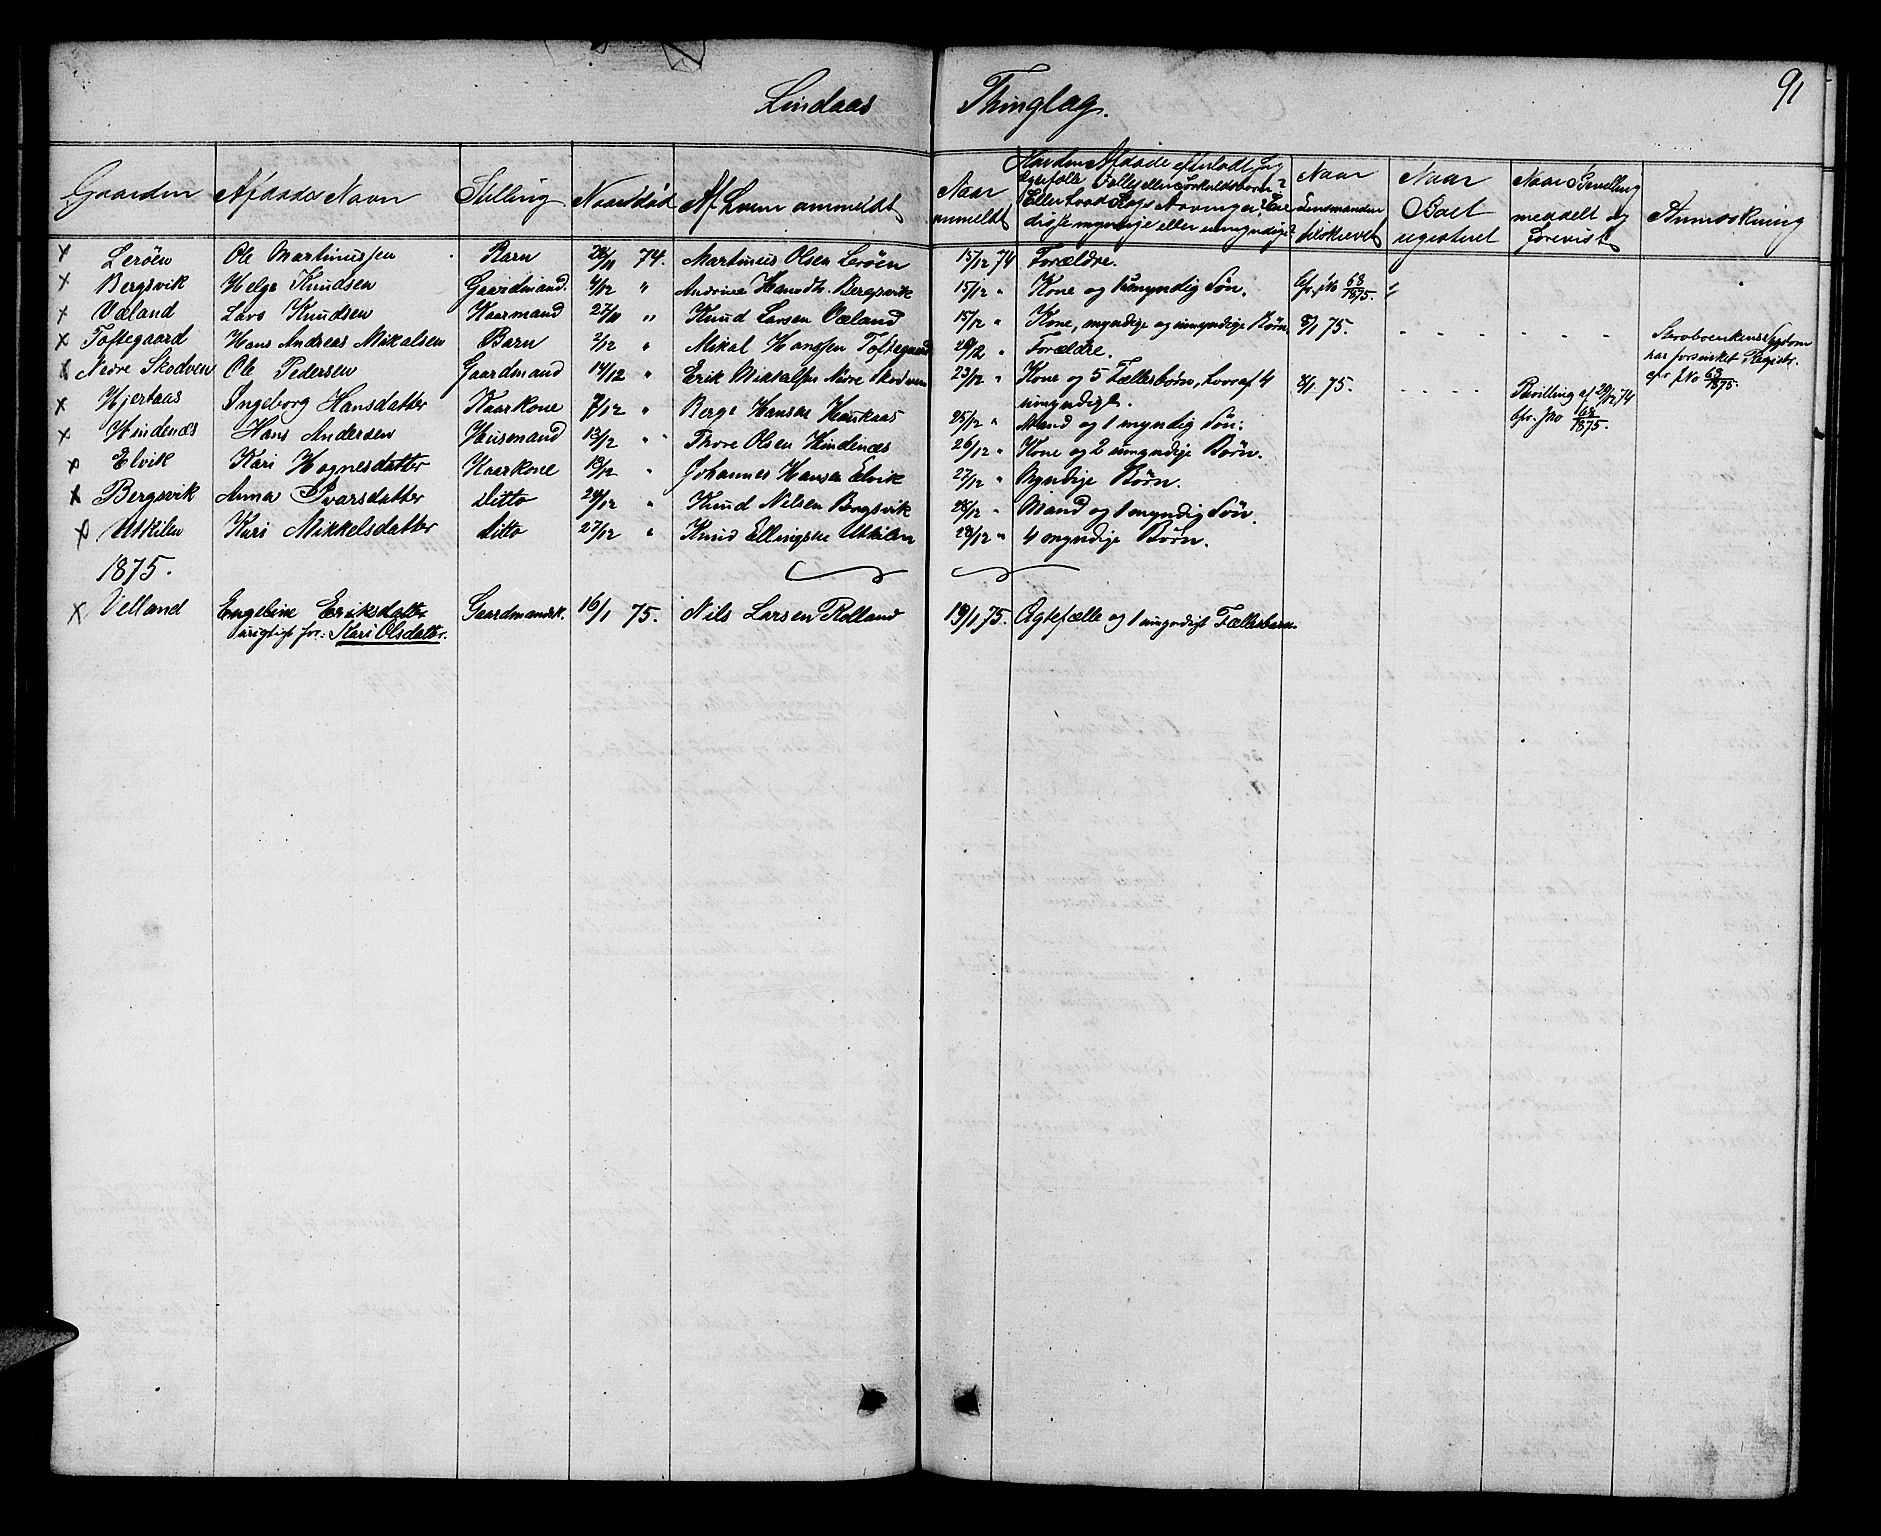 Lindaas Thinglag. 91
Gaarden Afdødes Navn Stilling Naar død Af hvem anmeldt Naar anmeldt Har den Afdøde efterladt sig Naar Naar Naar Bevilling Anmærkning
Ægtefælle Fælles eller Særkuldsbørn? Lensmanden Boet meddelt og
Eller hvad slags Arvinger? Ere tilskrevet registreret forevist
disse myndige eller umyndige?
x Lerøen Ole Martinussen Barn 28/11 74. Martinus Olsen Lerøen 15/12 74 Forældre.
x Bergsvik Helge Knudsen Gaardmand. 4/12 " Andrine Hansdtr. Bergsvik 15/12 " Kone og 1 umyndig Søn. Cfr. j No 68/1875.
x Væland Lars Knudsen Kaarmand 27/11 " Knud Larsen Væland 15/12 " Kone, myndige og umyndige Børn 8/1 75. - - - -
x Toftegaard Hans Andreas Mikalsen Barn 2/12 " Mikal Hanssen Toftegaard 20/12 " Forældre.
x Nedre Skodven Ole Pedersen Gaardmand 14/12 " Erik Mikkalsen Nedre Skodven 23/12 " Kone og 5 Fællesbørn, hvoraf 4 8/1 75. - - - Bevilling af 29/12 74 Skrobverkens Sygdom
umyndige. cfr. J No 68/1875. har forsinket Registr.
cfr J No 68/1875.
x Hjertaas Ingeborg Hansdatter Kaarkone 7/12 " Berge Hansen 25/12 " Mand og 1 myndig Søn.
x Hindenæs Hans Andersen Husmand 13/12 " Thore Olsen Hindenæs 26/12 " Kone og 2 umyndige Børn.
x Elvik Kari Hognesdatter Kaarkone 19/12 " Johannes Hansen Elvik 27/12 " Myndige Børn.
x Bergsvik Anna Ivarsdatter Ditto 24/12 " Knud Nilsen Bergsvik 28/12 " Mand og 1 myndig Søn.
x Utkilen Kari Mikkelsdatter ditto 27/12 " Knud Ellingsen Utkilen 28/12 " 4 myndige Børn.
1875.
x Velland Engeline Eriksdatter Gaardmandsk. 16/1 75. Nils Larsen Rolland 19/1 75. Ægtefælle og 1 umyndigt Fællesbarn.
urigtigt for: Kari Olsdatter.